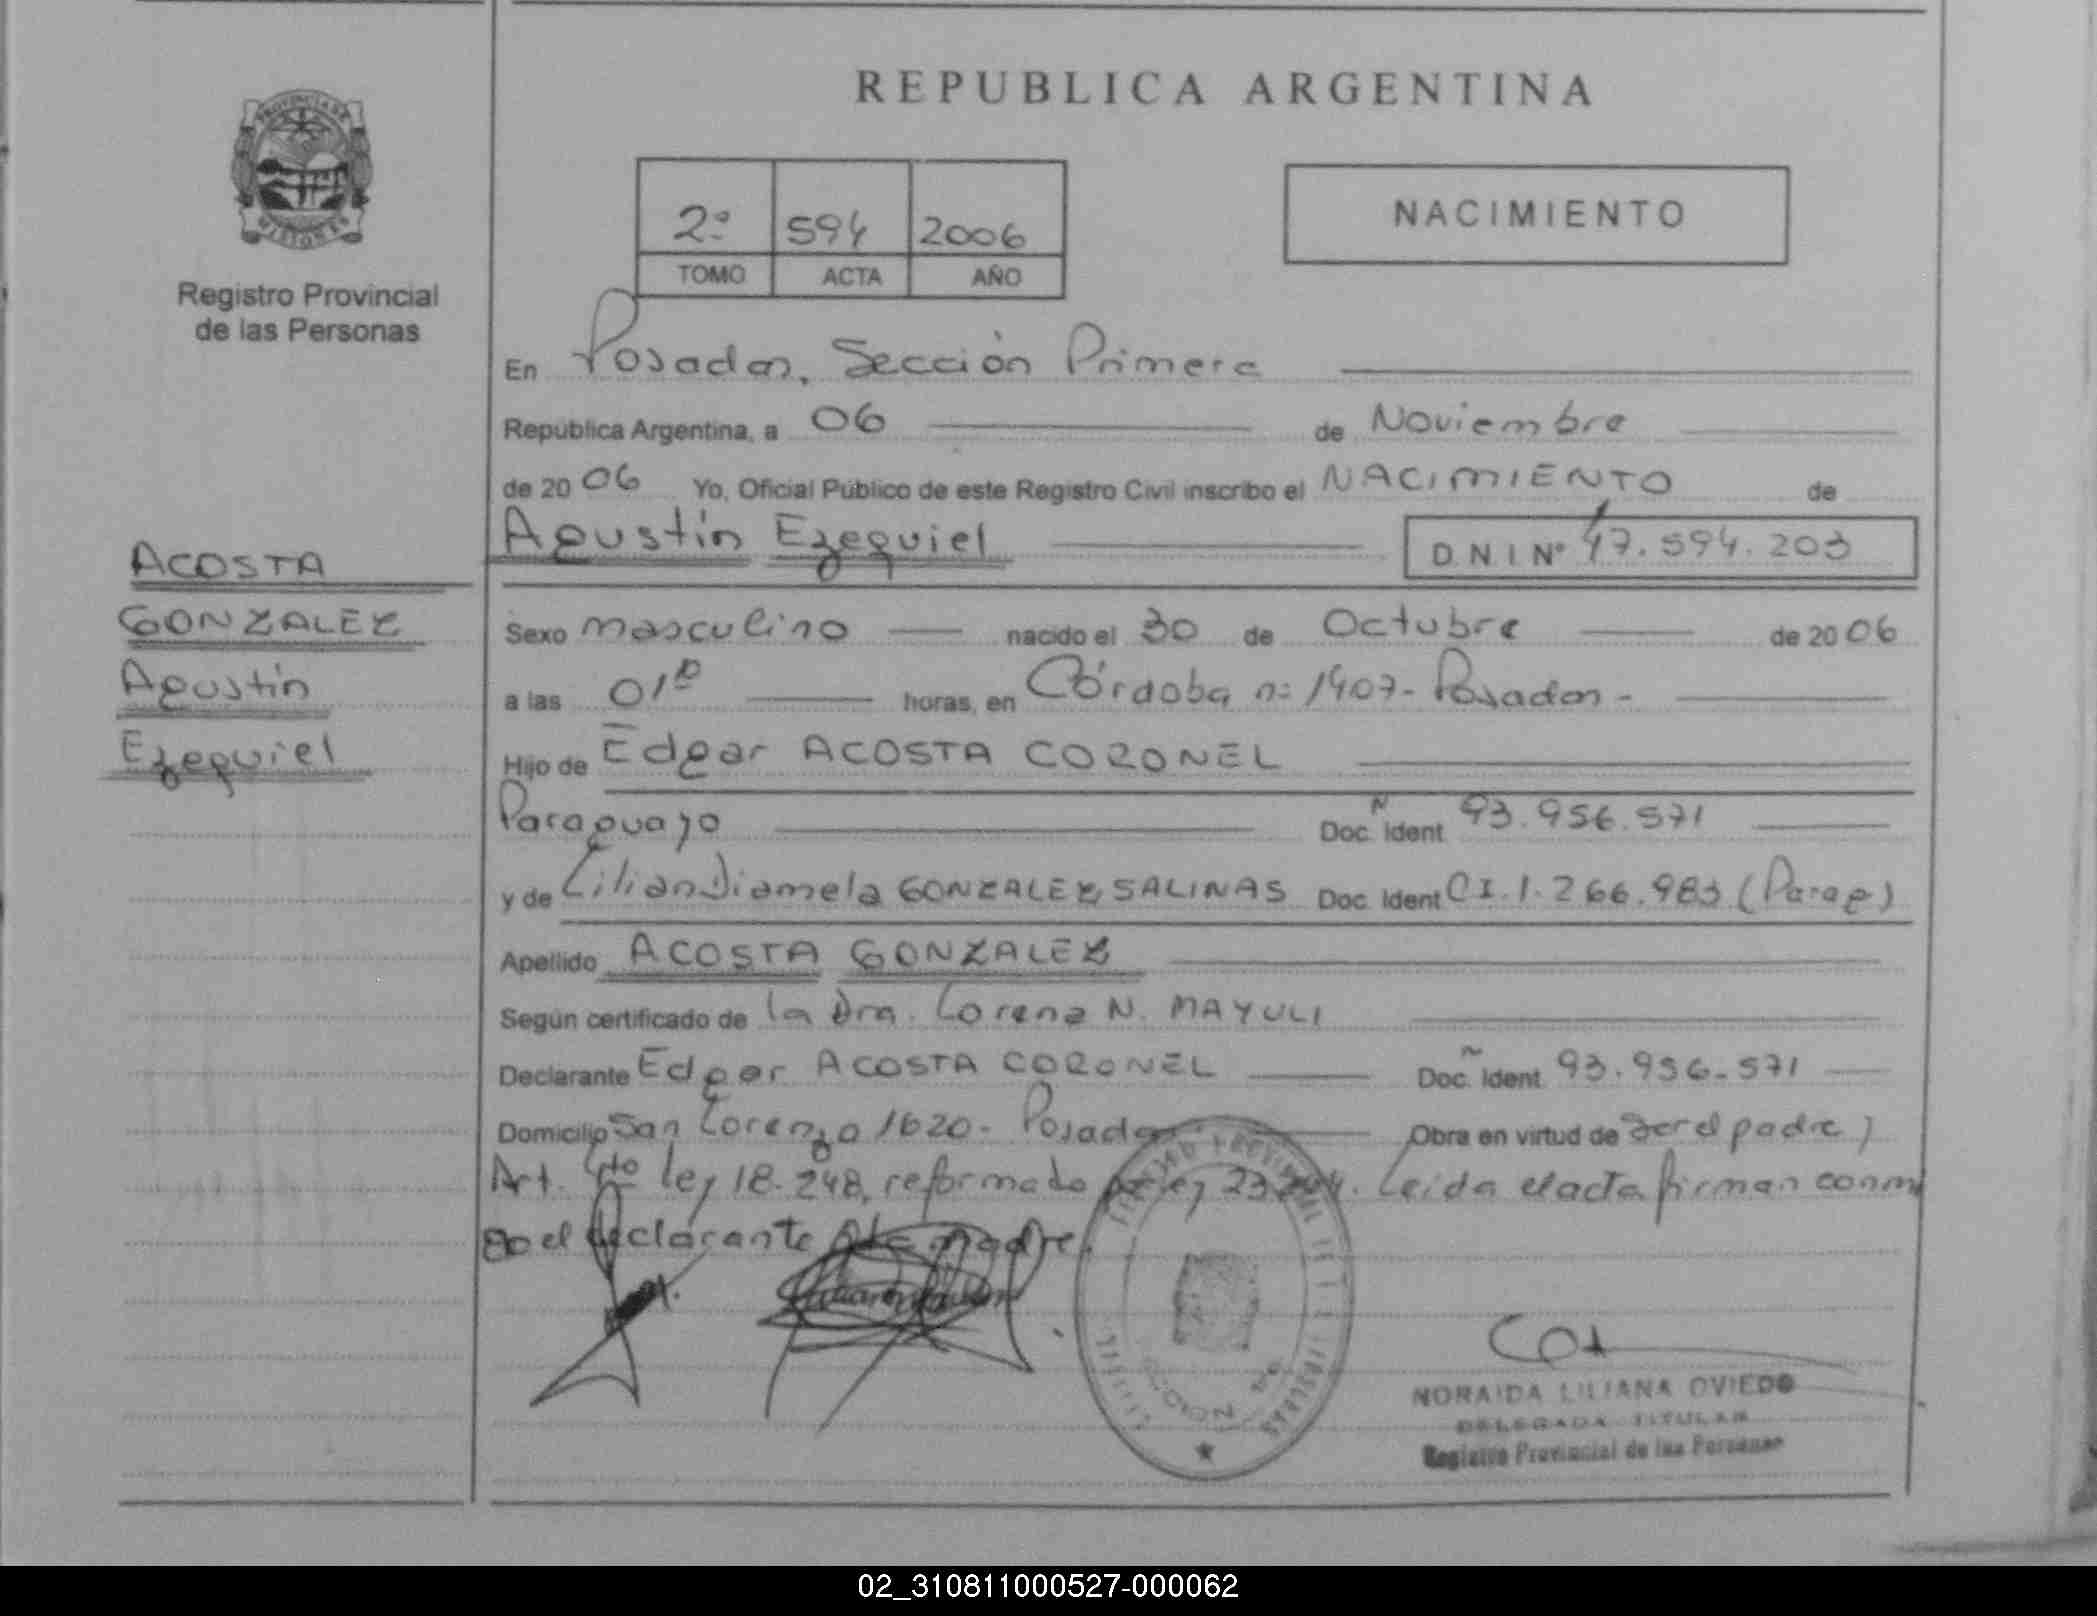 REPUBLICA ARGENTINA
PROVINCIA DE
MISIONES
Registro Provincial
de las Personas
2º 594 2006
TOMO ACTA AÑO
NACIMIENTO
En Posadas, Sección Primera
República Argentina, a 06 de Noviembre
de 2006 Yo, Oficial Público de este Registro Civil inscribo el NACIMIENTO de
Agustín Ezequiel D.N.I Nº 47.594.203
ACOSTA
GONZALEZ
Agustín
Ezequiel
Sexo masculino nacido el 30 de Octubre de 2006
a las 01 horas, en Córdoba nº 1407 - Posadas -
Hijo de Edgar ACOSTA CORONEL
Paraguayo Doc. Ident N 93.956.571
y de Lilian Diamela GONZALEZ SALINAS Doc. Ident CI. 1.266.983 (Parag)
Apellido ACOSTA GONZALEZ
Según certificado de la Dra. Lorena N. MAYULI
Declarante Edgar ACOSTA CORONEL Doc. Ident 93.956.571
Domicilio San Lorenzo 1620 - Posadas Obra en virtud de ser el padre,
Art. 4to ley 18.248, reformado Leida el acta firman conmi
go el declarante madre.
NORAIDA LILIANA OVIEDO
DELEGADA TITULAR
Registro Provincial de las Personas
02_310811000527-000062